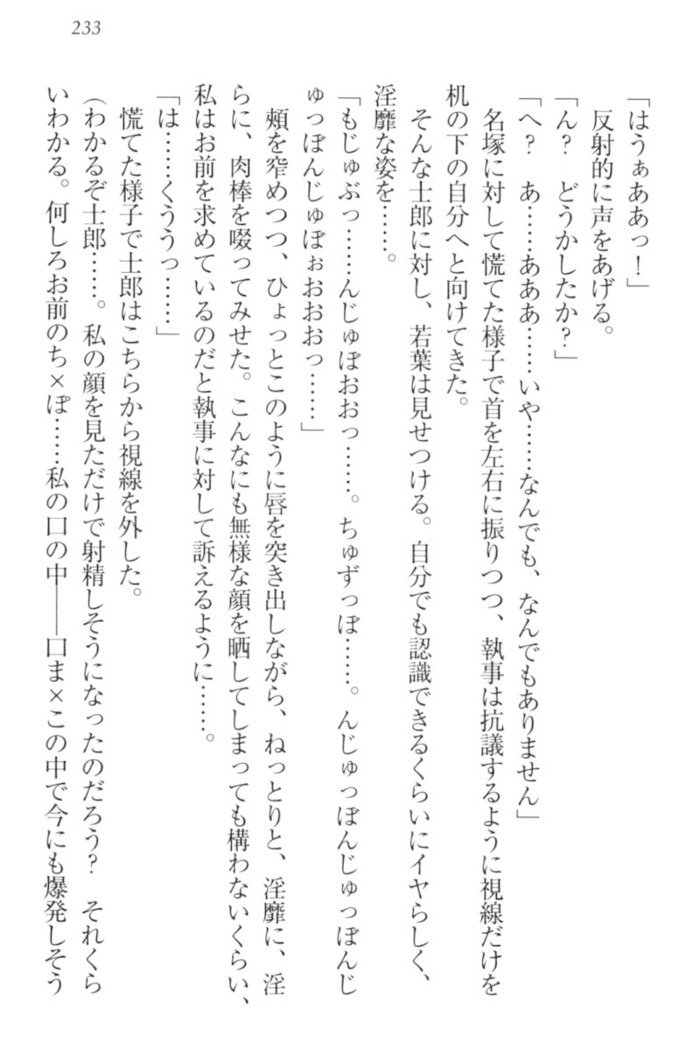 233
「はうぁああっ！」
　反射的に声をあげる。
「ん？　どうかしたか？」
「へ？　あ……あああ……いや……なんでも、なんでもありません」
　名塚に対して慌てた様子で首を左右に振りつつ、執事は抗議するように視線だけを
机の下の自分へと向けてきた。
　そんな士郎に対し、若葉は見せつける。自分でも認識できるくらいにイヤらしく、
淫靡な姿を……。
「もじゅぶっ……んじゅぼおおっ……。ちゅずっぽ……。んじゅっぽんじゅっぽんじ
ゅっぽんじゅぽぉおおおっ……」
　頰を窄めつつ、ひょっとこのように唇を突き出しながら、ねっとりと、淫靡に、淫
らに、肉棒を啜ってみせた。こんなにも無様な顔を晒してしまっても構わないくらい、
私はお前を求めているのだと執事に対して訴えるように……。
「は……くううっ……」
　慌てた様子で士郎はこちらから視線を外した。
（わかるぞ士郎……。私の顔を見ただけで射精しそうになったのだろう？　それくら
いわかる。何しろお前のち×ぽ……私の口の中――口ま×この中で今にも爆発しそう